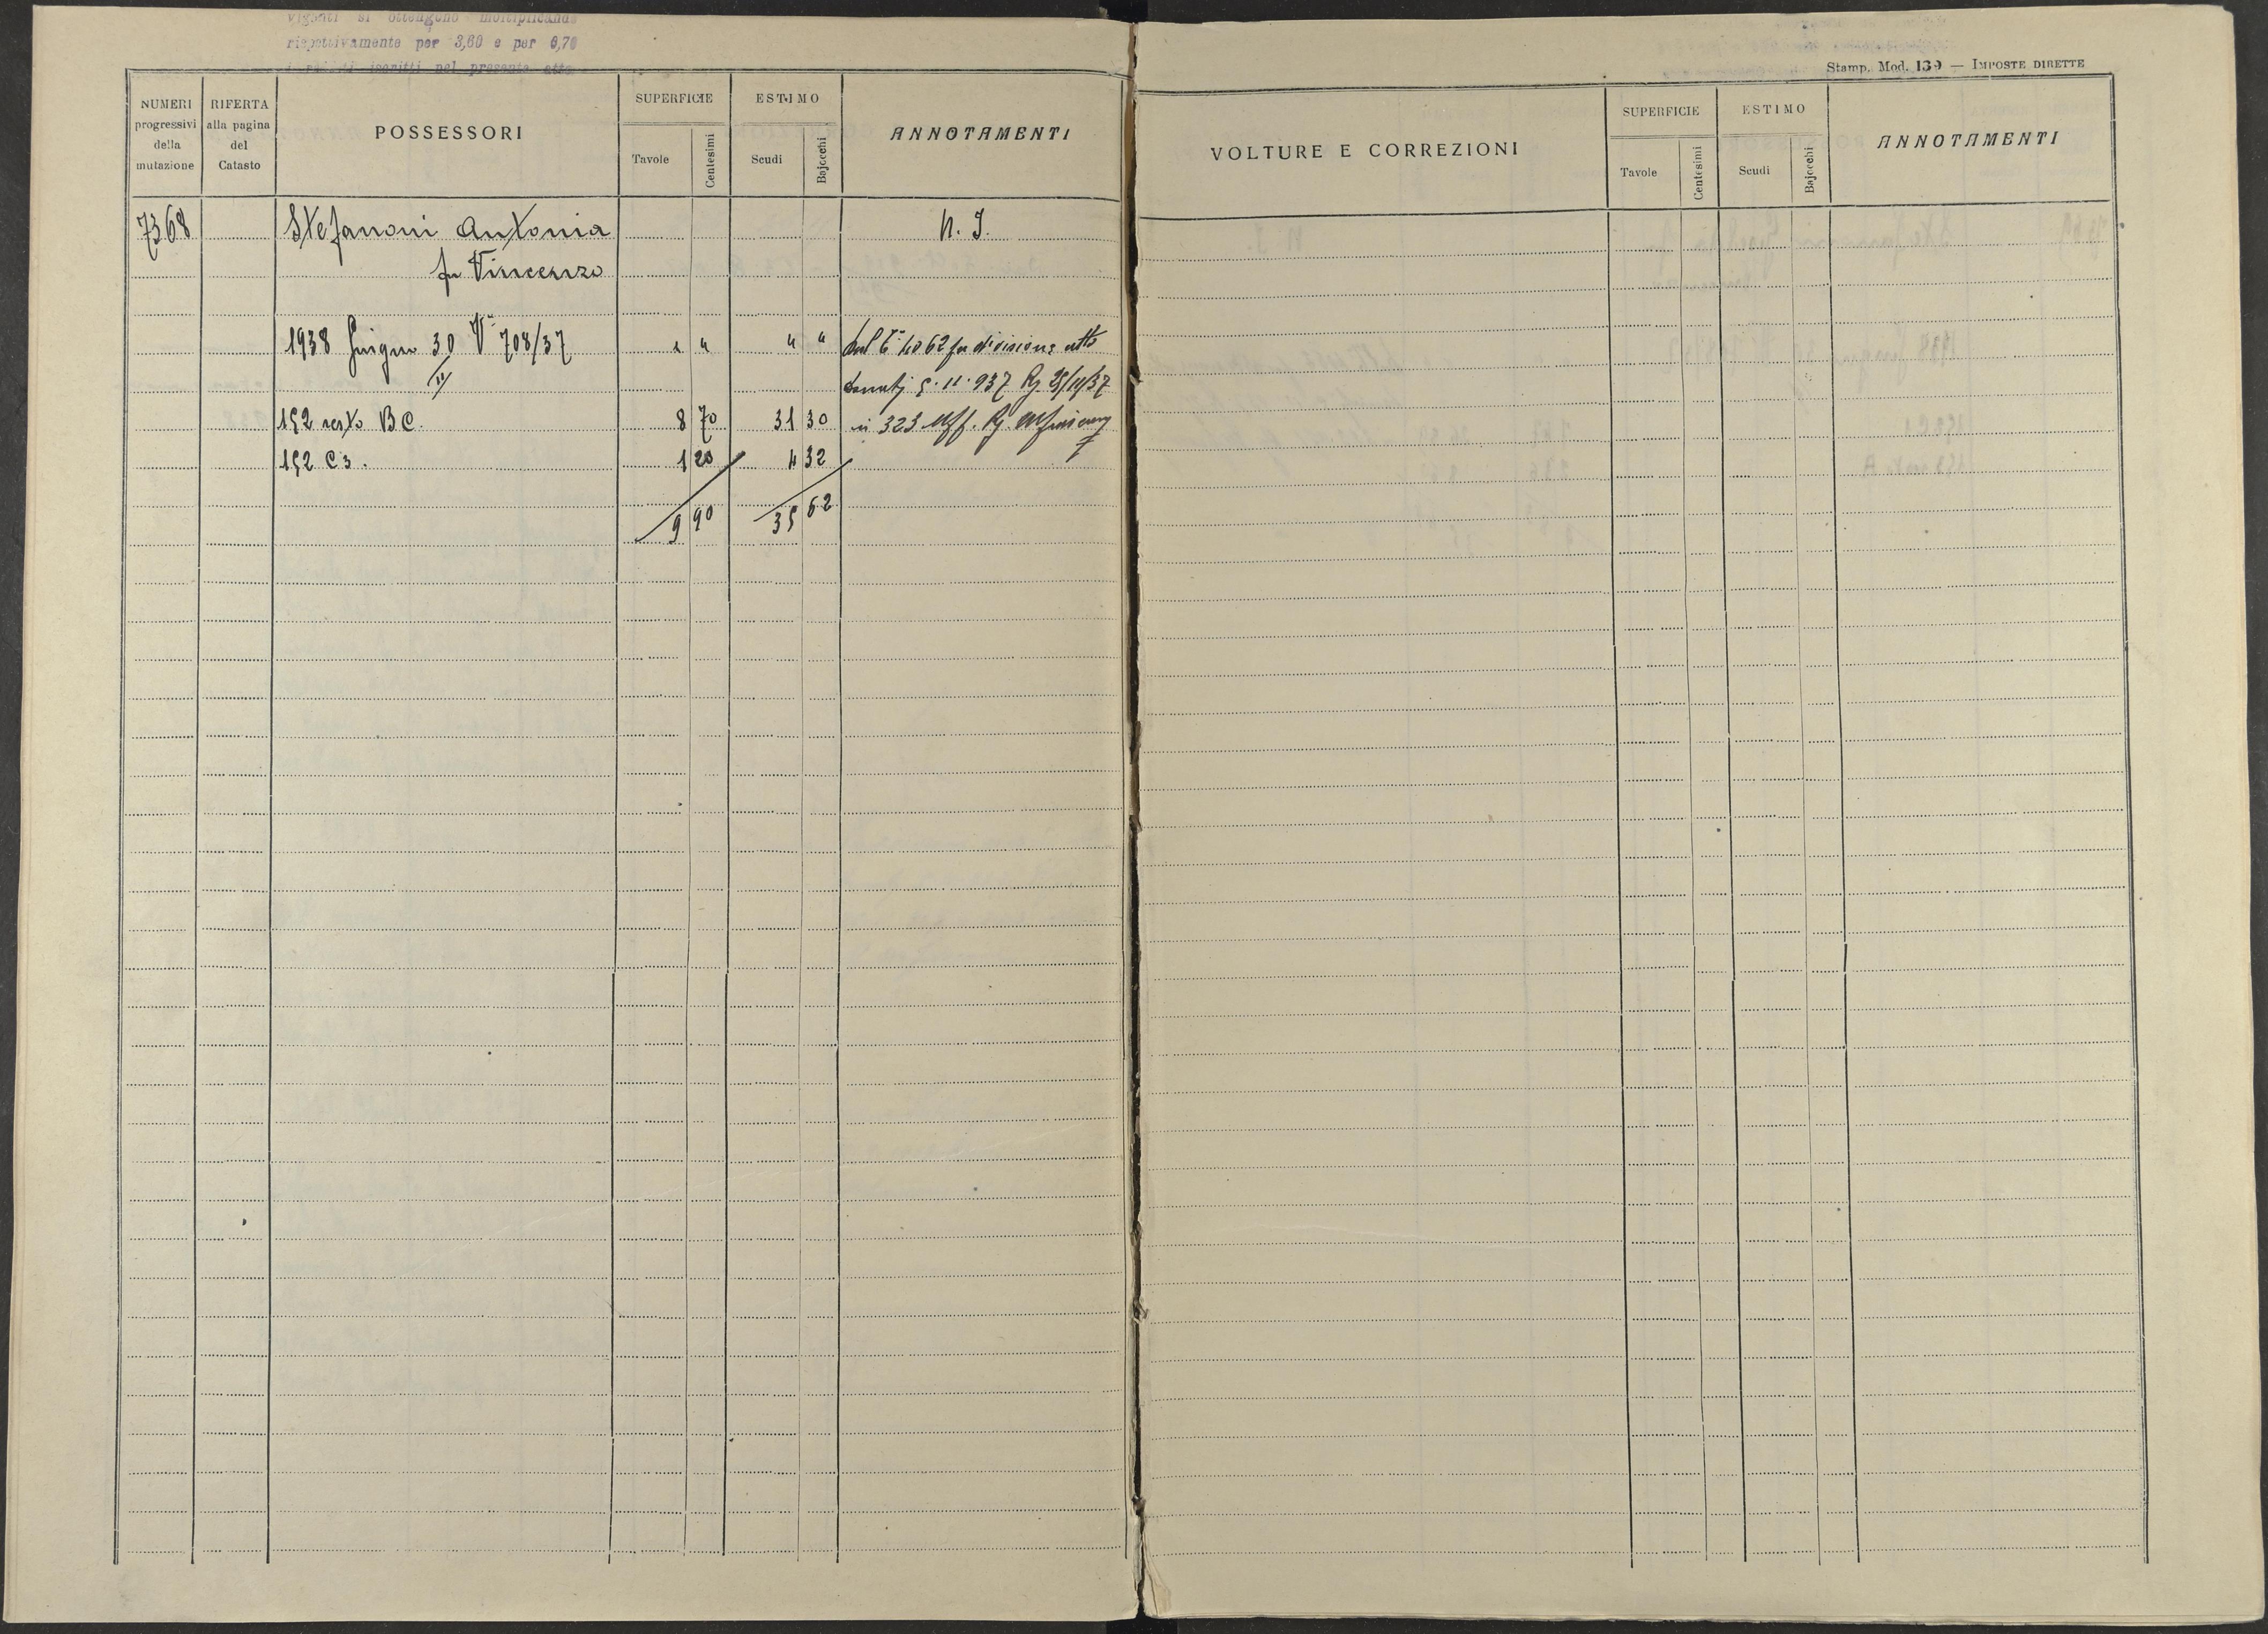 vigenti si ottengono moltiplicando
rispettivamente per 3,60 e per 0,70
iscritti nel presente atto
NUMERI progressivi della mutazione
RIFERTA alla pagina del Catasto
POSSESSORI
SUPERFICIE
Tavole
Centesimi
ESTIMO
Scudi
Bajocchi
ANNOTAMENTI
7368 Stefanoni Antonia N. I.
fu Vincenzo
1938 Giugno 30 V 708/37 " " " "
per divisione atto
5.11.937
152 resto BC. 8 70 31 30 n 323 Uff. Rg.
152 C3. 1 20 4 32
9 90 35 62
Stamp. Mod. 139 — IMPOSTE DIRETTE
VOLTURE E CORREZIONI
SUPERFICIE
Tavole
Centesimi
ESTIMO
Scudi
Bajocchi
ANNOTAMENTI